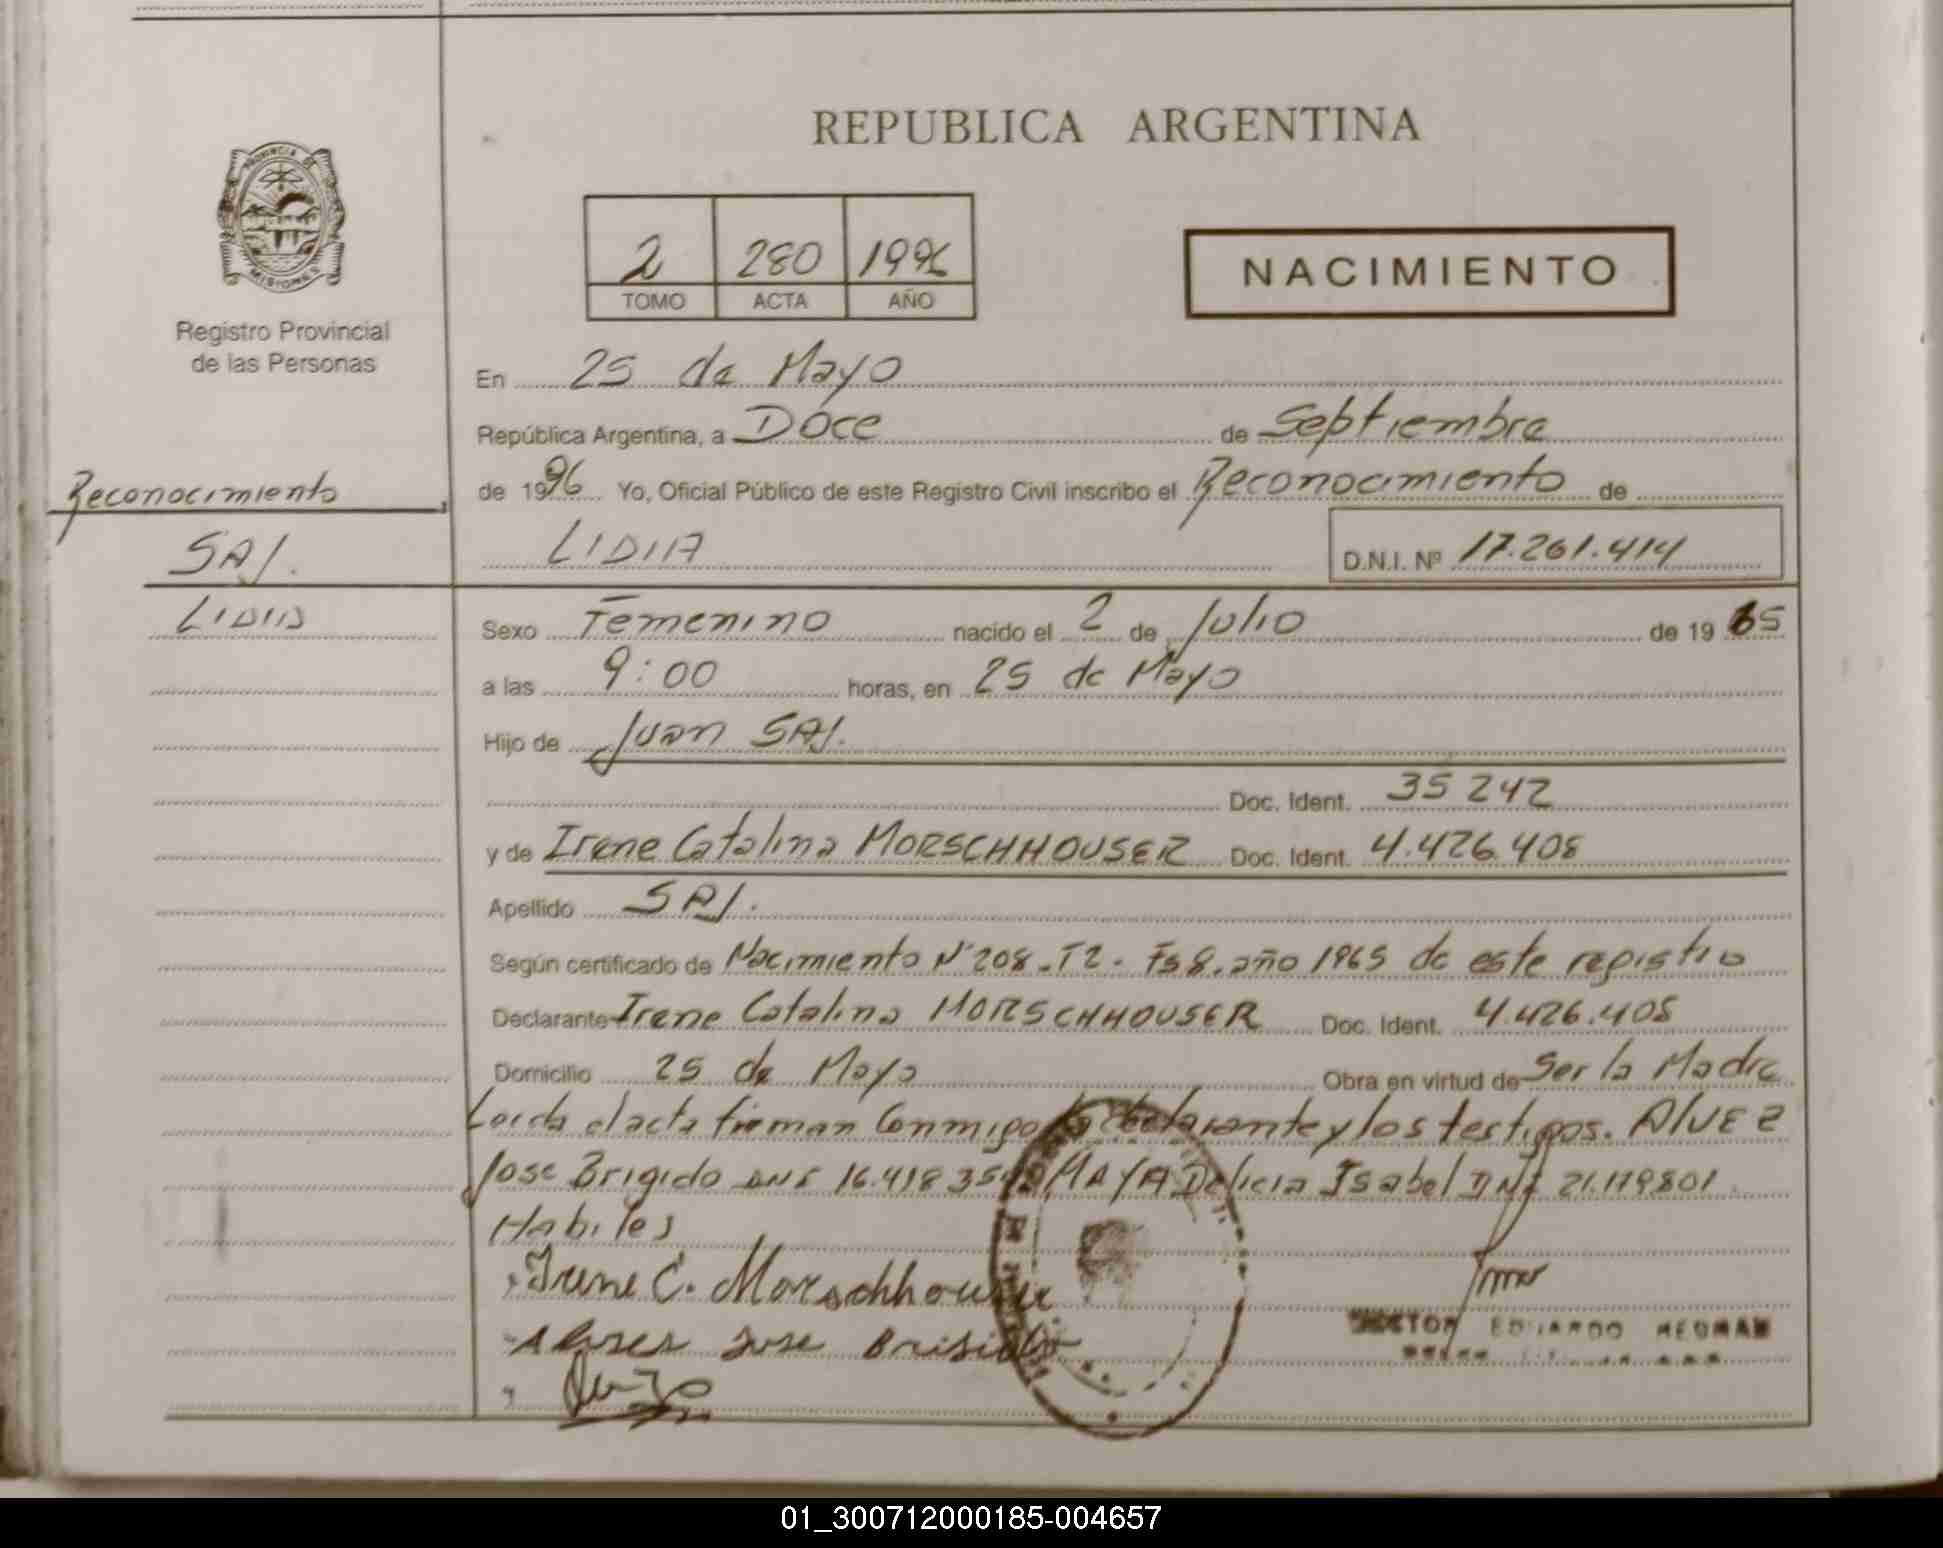 REPUBLICA ARGENTINA
PROVINCIA DE
MISIONES
Registro Provincial
de las Personas
2 280 1996
TOMO ACTA AÑO
NACIMIENTO
En 25 de Mayo
República Argentina, a Doce de Septiembre
de 1996 Yo, Oficial Público de este Registro Civil inscribo el Reconocimiento de
LIDIA D.N.I. Nº 17.261.414
Reconocimiento
SAJ.
LIDIA
Sexo Femenino nacido el 2 de Julio de 1965
a las 9:00 horas, en 25 de Mayo
Hijo de Juan SAJ.
Doc. Ident. 35 242
y de Irene Catalina MORSCHHOUSER Doc. Ident. 4.426.408
Apellido SAJ.
Según certificado de Nacimiento Nº 208. T2. Fs 8. año 1965 de este registro
Declarante Irene Catalina MORSCHHOUSER Doc. Ident. 4.426.408
Domicilio 25 de Mayo Obra en virtud de Ser la Madre
Leida el acta firman Conmigo la declarante y los testigos. AlVEZ
Jose Brigido DNI MAYA Delicia Isabel DNI 21.119801
Habiles
Irene C. Morschhouser
Alvez Jose Brigido
EDUARDO
01_300712000185-004657